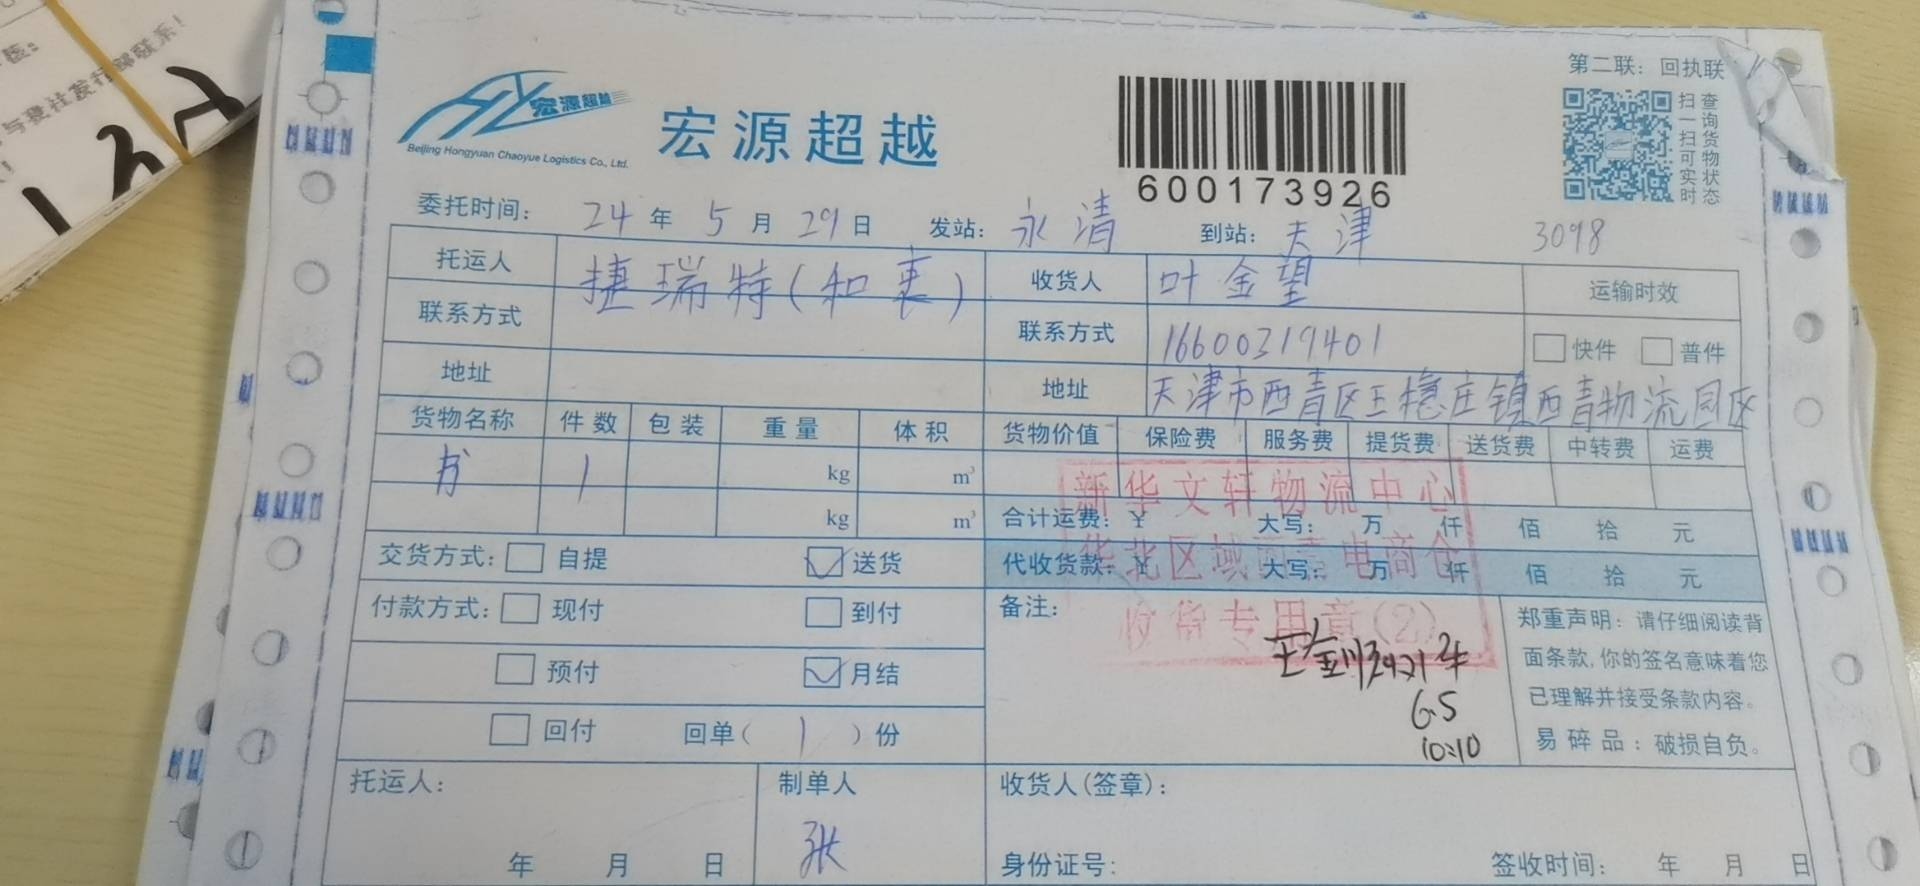 第二联：回执联
宏源超越
Beijing Hongyuan Chaoyue Logistics Co., Ltd.
宏源超越
600173926
扫一扫可实时
查询货物状态
委托时间： 24 年 5 月 29 日 发站： 永清 到站： 天津 3098
托运人 捷瑞特(和衷) 收货人 叶金望 运输时效
联系方式 联系方式 16600319401 快件 普件
地址 地址 天津市西青区王稳庄镇西青物流园区
货物名称 件数 包装 重量 体积 货物价值 保险费 服务费 提货费 送货费 中转费 运费
书 1 kg m³
kg m³ 合计运费：¥ 大写： 万 仟 佰 拾 元
交货方式： 自提 送货 代收货款：¥ 大写： 万 仟 佰 拾 元
新华文轩物流中心
华北区域图书电商仓
收货专用章(2)
付款方式： 现付 到付 备注：
预付 月结
回付 回单（ 1 ）份
6.5
10:10
郑重声明：请仔细阅读背
面条款,你的签名意味着您
已理解并接受条款内容。
易碎品：破损自负。
托运人： 制单人 收货人(签章)：
张
年 月 日 身份证号： 签收时间： 年 月 日